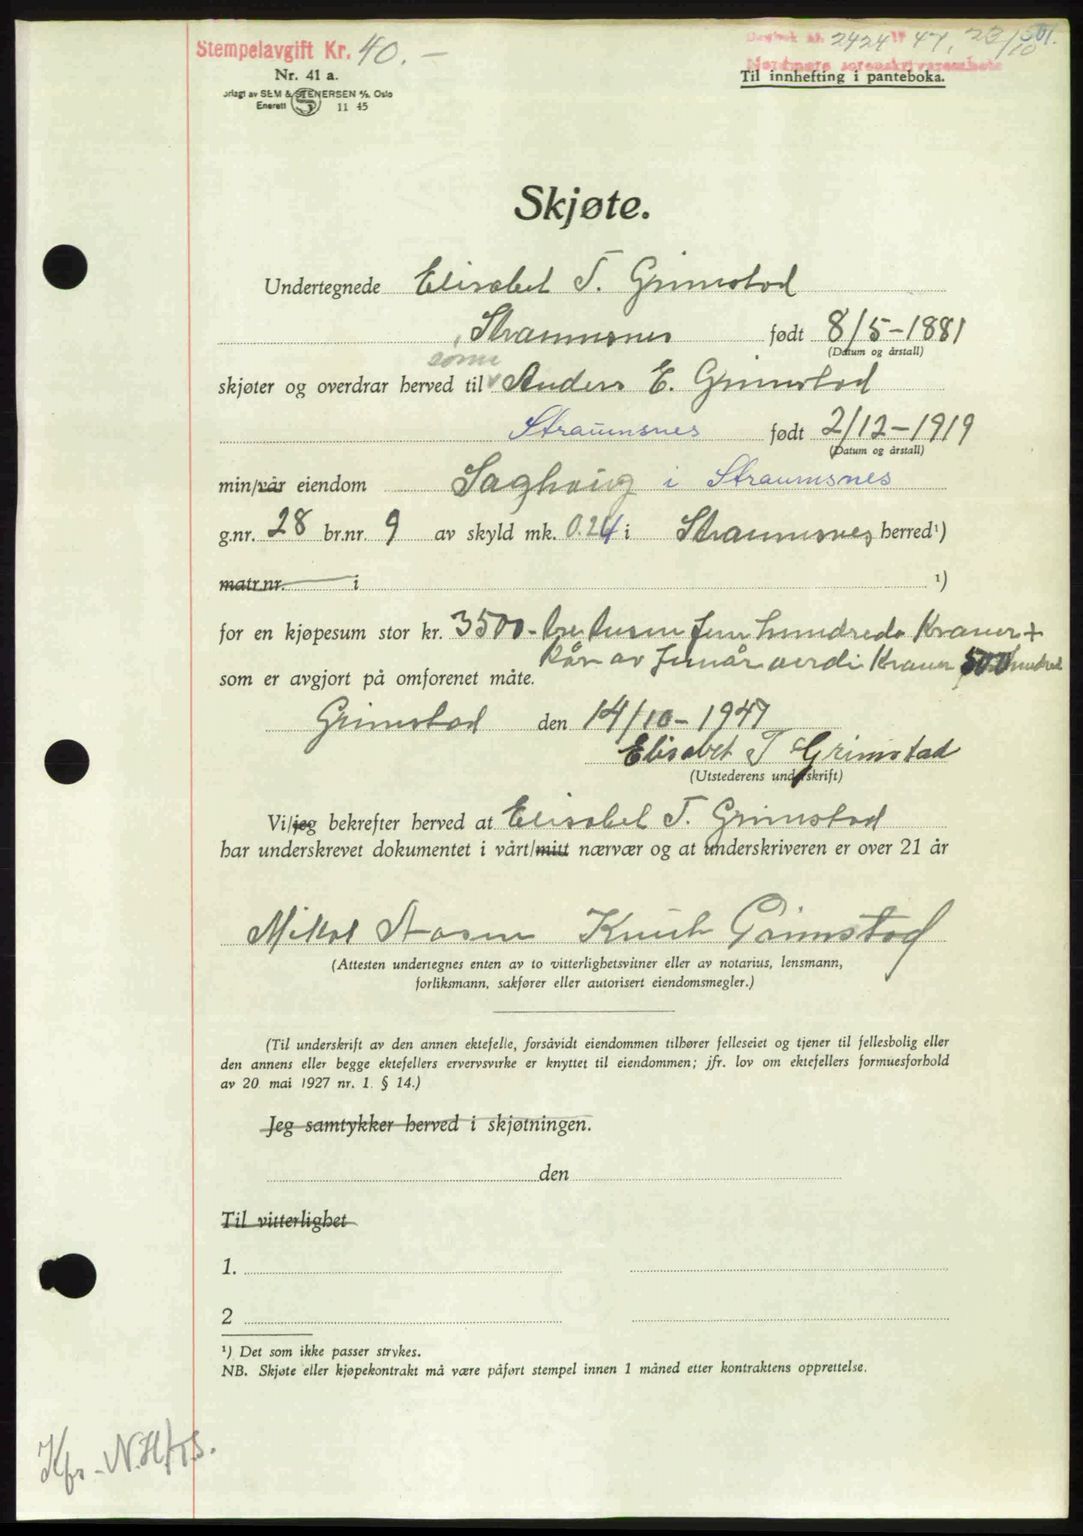 Stempelavgift Kr. 40.—
Dagbok nr. 2424 19 47, 23/10
501.
Nordmøre sorenskriverembete
Nr. 41 a.
Til innhefting i panteboka.
orlagt av SEM & STENERSEN A/S, Oslo
Enerett S 11 45
Skjøte.
Undertegnede Elisabet T. Grimstad
, Straumsnes født 8/5-1881
(Datum og årstall)
sønn
skjøter og overdrar herved til v Anders E. Grimstad
Straumsnes født 2/12-1919
(Datum og årstall)
min/vår eiendom Saghaug i Straumsnes
g.nr. 28 br.nr. 9 av skyld mk. 0.24 i Straumsnes herred¹)
matr.nr. i ¹)
for en kjøpesum stor kr. 3500- tre tusen fem hundrede Kroner +
Kår av femår verdi Kroner 500
som er avgjort på omforenet måte.
Grimstad den 14/10-1947
Elisabet T Grimstad
(Utstederens underskrift)
Vi/jeg bekrefter herved at Elisabet T. Grimstad
har underskrevet dokumentet i vårt/mitt nærvær og at underskriveren er over 21 år
Mikal Aasen Knut Grimstad
(Attesten undertegnes enten av to vitterlighetsvitner eller av notarius, lensmann,
forliksmann, sakfører eller autorisert eiendomsmegler.)
(Til underskrift av den annen ektefelle, forsåvidt eiendommen tilhører felleseiet og tjener til fellesbolig eller
den annens eller begge ektefellers ervervsvirke er knyttet til eiendommen; jfr. lov om ektefellers formuesforhold
av 20 mai 1927 nr. 1. § 14.)
Jeg samtykker herved i skjøtningen.
den
Til vitterlighet
1.
2
¹) Det som ikke passer strykes.
NB. Skjøte eller kjøpekontrakt må være påført stempel innen 1 måned etter kontraktens opprettelse.